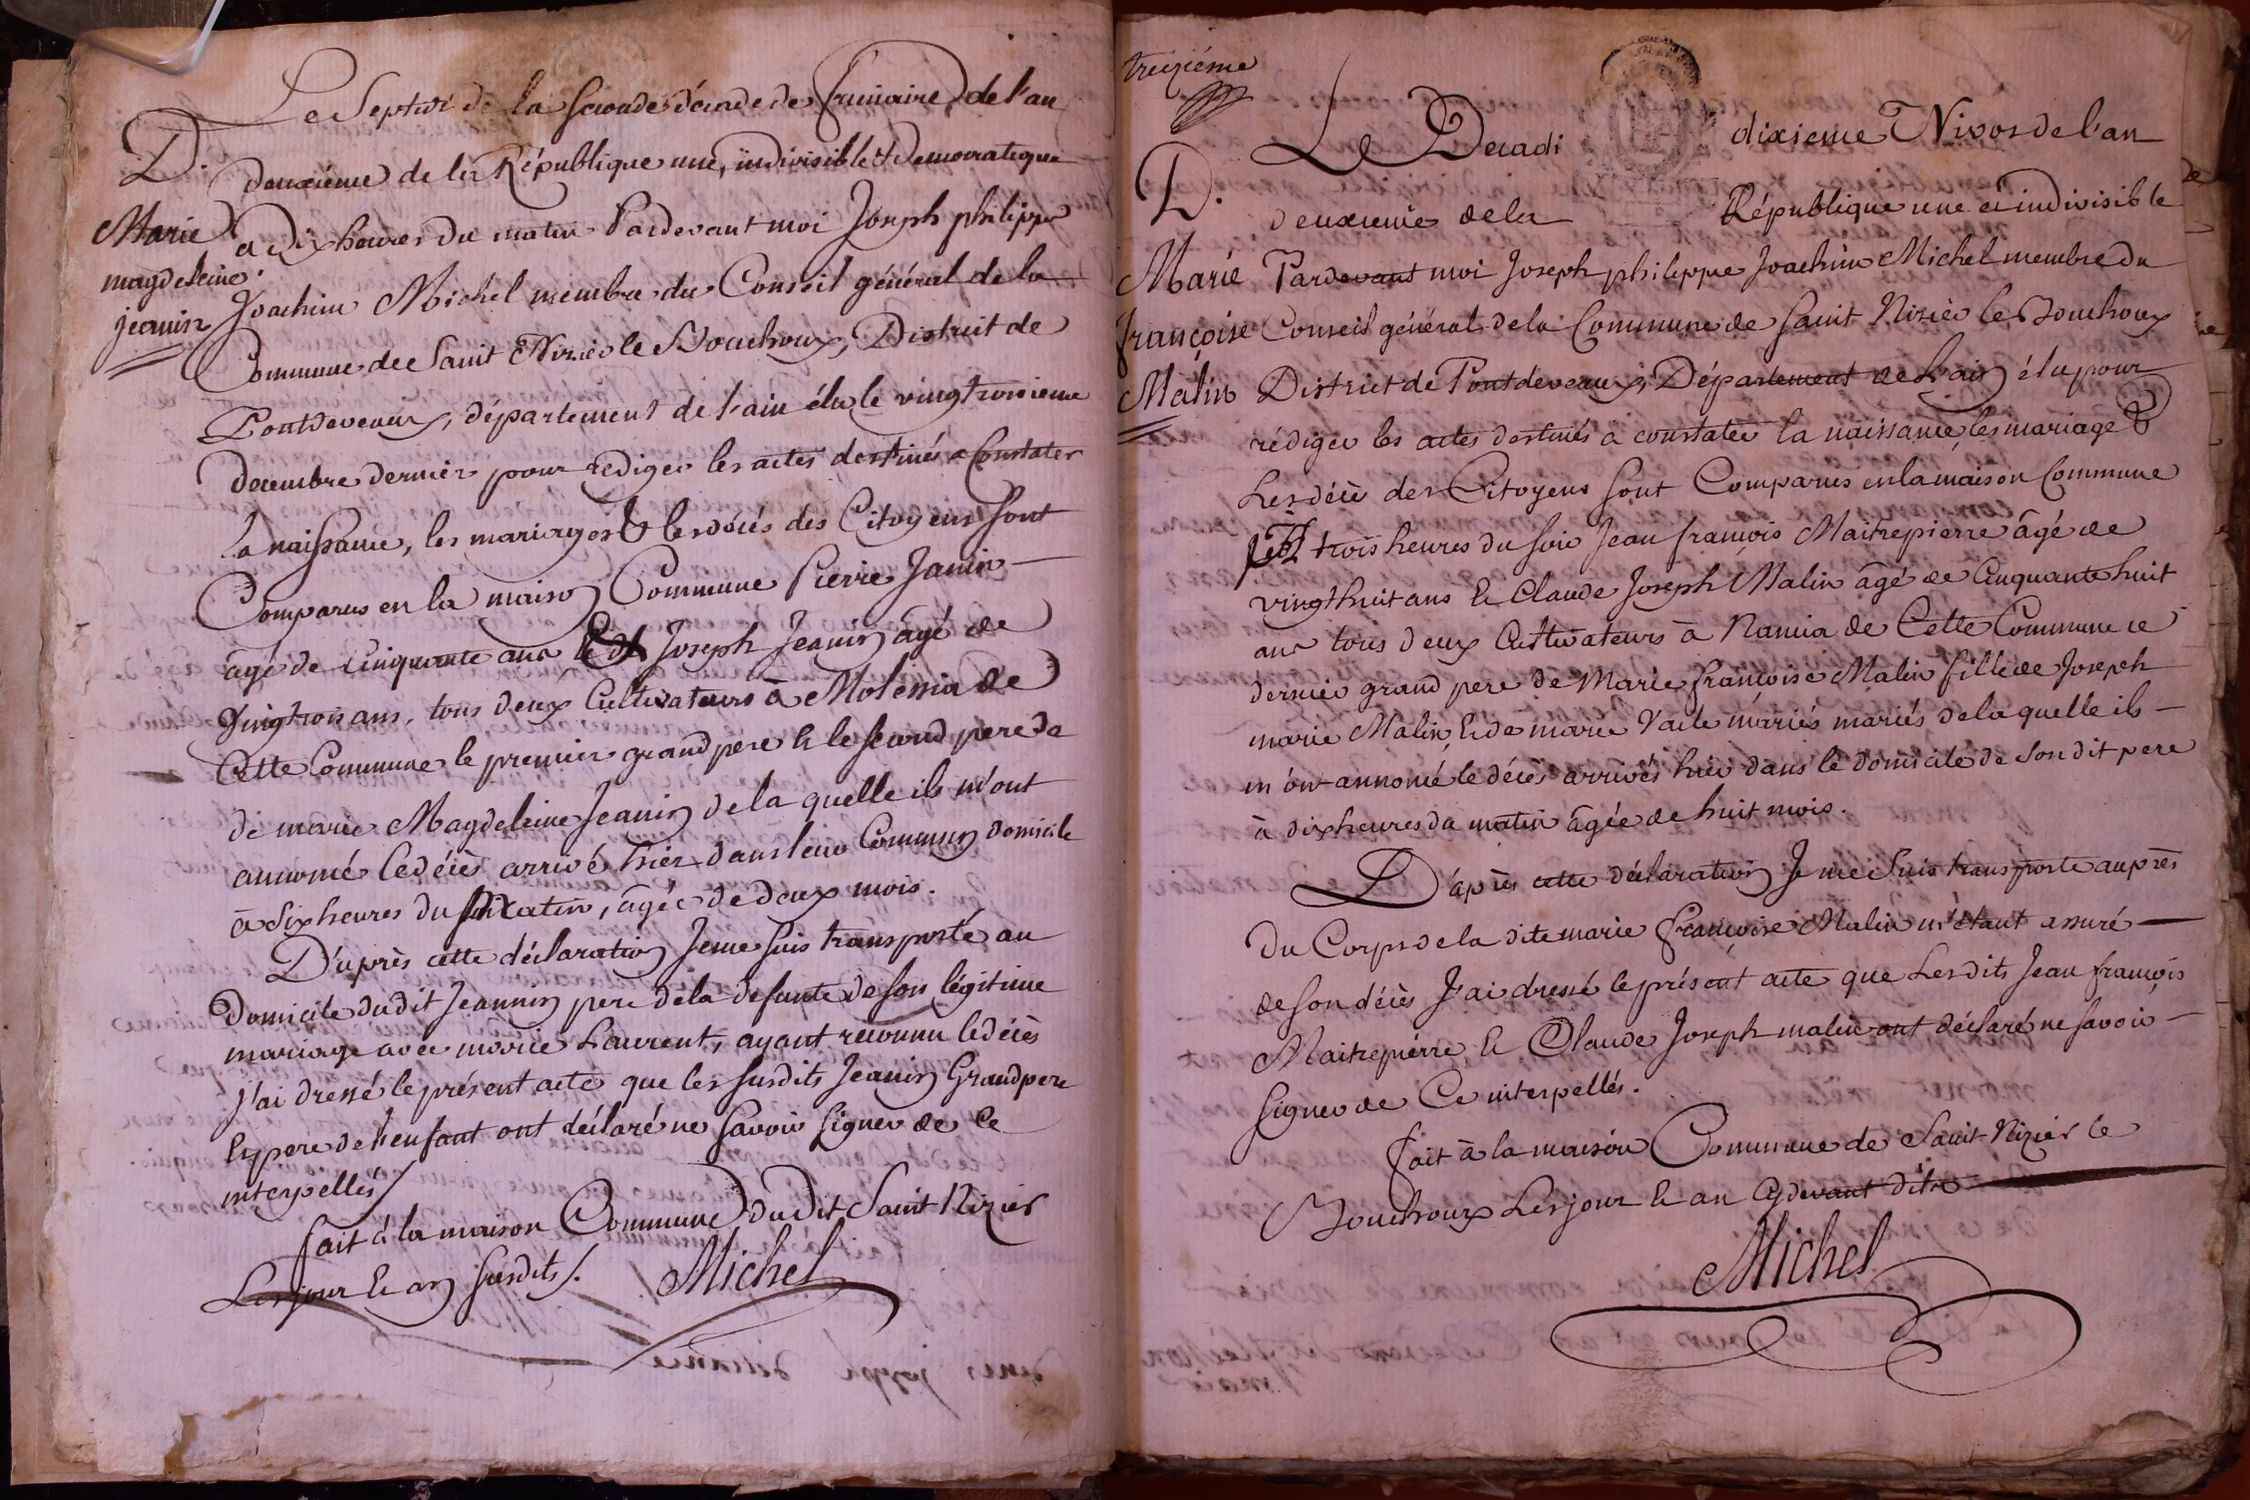 Le Septidi de la seconde décade de frimaire de l'an
D.
deuxième de la République une, indivisible & democratique
Marie
magdeleine
jeanin
a dix heures du matin Pardevant moi Joseph philippe
Joachim Michel membre du Conseil général de la
Commune de Saint Nizier le Bouchoux, District de
Pontdevaux, département de l'ain élu le vingttroisieme
decembre dernier pour rediger les actes destinés a Constater
la naissance, les mariages & les décès des Citoyens sont
Comparus en la maison Commune Pierre Janin
âgé de cinquante ans Et Joseph Jeanin âgé de
vingttrois ans, tous deux Cultivateurs à Molessia de
Cette Commune le premier grand pere & le second pere de
de marie Magdeleine Jeanin de la quelle ils m'ont
annoncé le décès arrivé hier dans leur Commun domicile
à dix heures du matin, âgée de deux mois.
D'après cette déclaration Je me suis transporté au
Domicile du dit Jeannin pere de la defunte de son légitime
mariage avec marie Laurent, ayant reconnu le décès
J'ai dressé le présent acte que les susdits Jeanin Grand pere
Et pere de l'enfant ont déclaré ne savoir signer de Ce
interpellés/
fait à la maison Commune du dit Saint Nizier
Les jour & an susdits/. Michel
treizième
Le Decadi dixieme Nivos de l'an
D.
deuxieme de la République une et indivisible
Marie
françoise
Malin
Pardevant moi Joseph philippe Joachim Michel membre du
Conseil général de la Commune de Saint Nizier le Bouchoux
District de Pontdevaux, Département de l'ain élu pour
rédiger les actes destinés a constater la naissance les mariage &
Les décès des Citoyens sont Comparus en la maison Commune
trois heures du soir Jean françois Maitrepierre âgé de
vingthuit ans & Claude Joseph Malin âgé de Cinquantehuit
ans tous deux Cultivateurs à Nancia de Cette Commune ce
dernier grand pere de Marie françoise Malin fille de Joseph
marie Malin & de marie Vaile mariés mariés de la quelle ils
m'ont annoncé le décès arrivés hier dans le domicile de son dit pere
à dix heures du matin âgée de huit mois.
D'après cette déclaration Je me suis transporté auprès
du Corps de la dite marie françoise Malin m'étant assuré
de son décès J'ai dressé le présent acte que Les dits Jean françois
Maitrepierre & Claude Joseph malin ont déclaré ne savoir
signer de Ce interpellés.
fait à la maison Commune de Saint-Nizier le
Bouchoux Les jour & an Cydevant dits
Michel